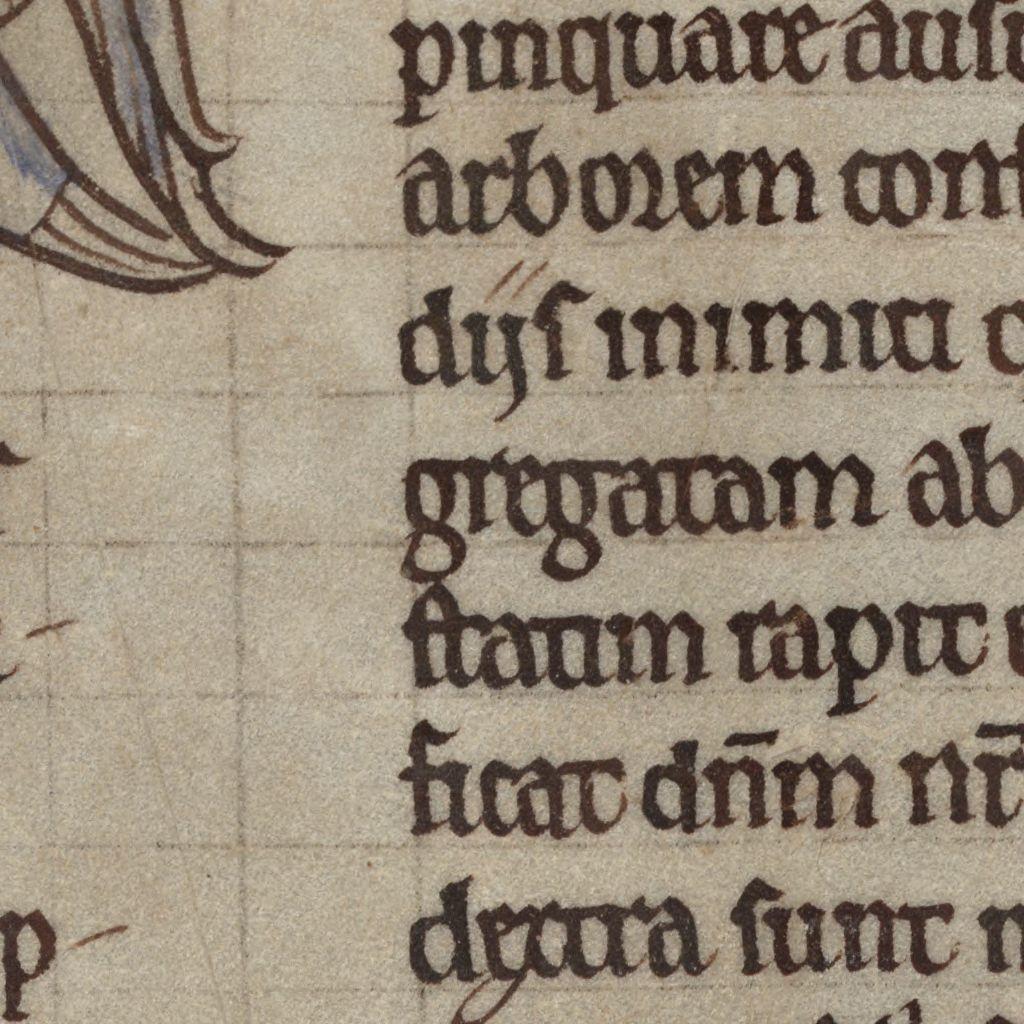 pinquare
arborem
dijs inimici
gregatam ab
statim rapit
ficat dn̄m nr̄
dextra sunt
p